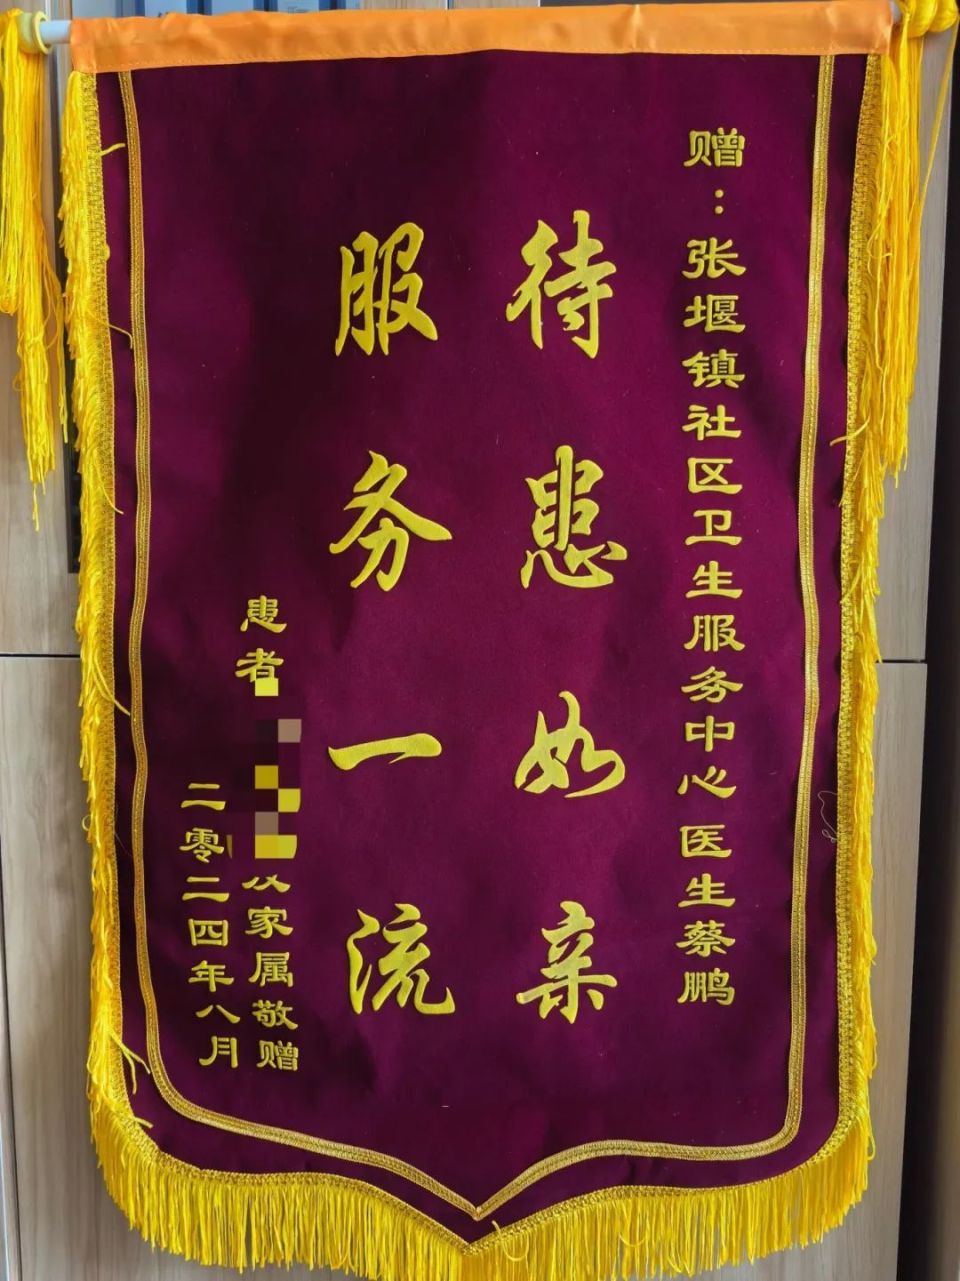 赠：张堰镇社区卫生服务中心 医生蔡鹏
待患如亲
服务一流
患者
及家属敬赠
二零二四年八月